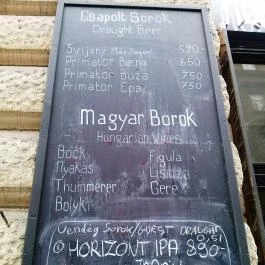 Csapolt Sörök
Draught Beer
Svijany Máz/lager/ 590-
Primator Barna 650
Primator Búza 750
Primator Epa 750
Magyar Borok
Hungarian Wines
Bock Figula
Nyakas
Thummerer Gere
Bolyki
Vendég Sörök/GUEST DRAUGHT
0,5l
HORIZONT IPA 890-